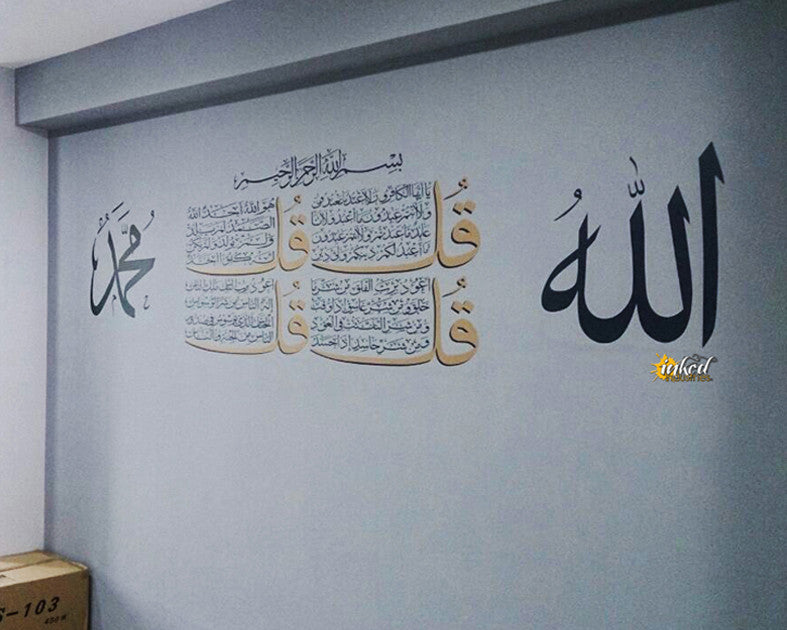 الله
بسم الله الرحمن الرحيم
قل
يا أيها الكافرون لا أعبد ما تعبدون
ولا أنتم عابدون ما أعبد ولا أنا
عابد ما عبدتم ولا أنتم عابدون
ما أعبد لكم دينكم ولي دين
قل
هو الله أحد الله
الصمد لم يلد
ولم يولد ولم يكن
له كفوا أحد
قل
أعوذ برب الفلق من شر ما
خلق ومن شر غاسق إذا وقب
ومن شر النفاثات في العقد
ومن شر حاسد إذا حسد
قل
أعوذ برب الناس ملك الناس
إله الناس من شر الوسواس
الخناس الذي يوسوس في صدور
الناس من الجنة والناس
محمد
inked
S-103
450 W